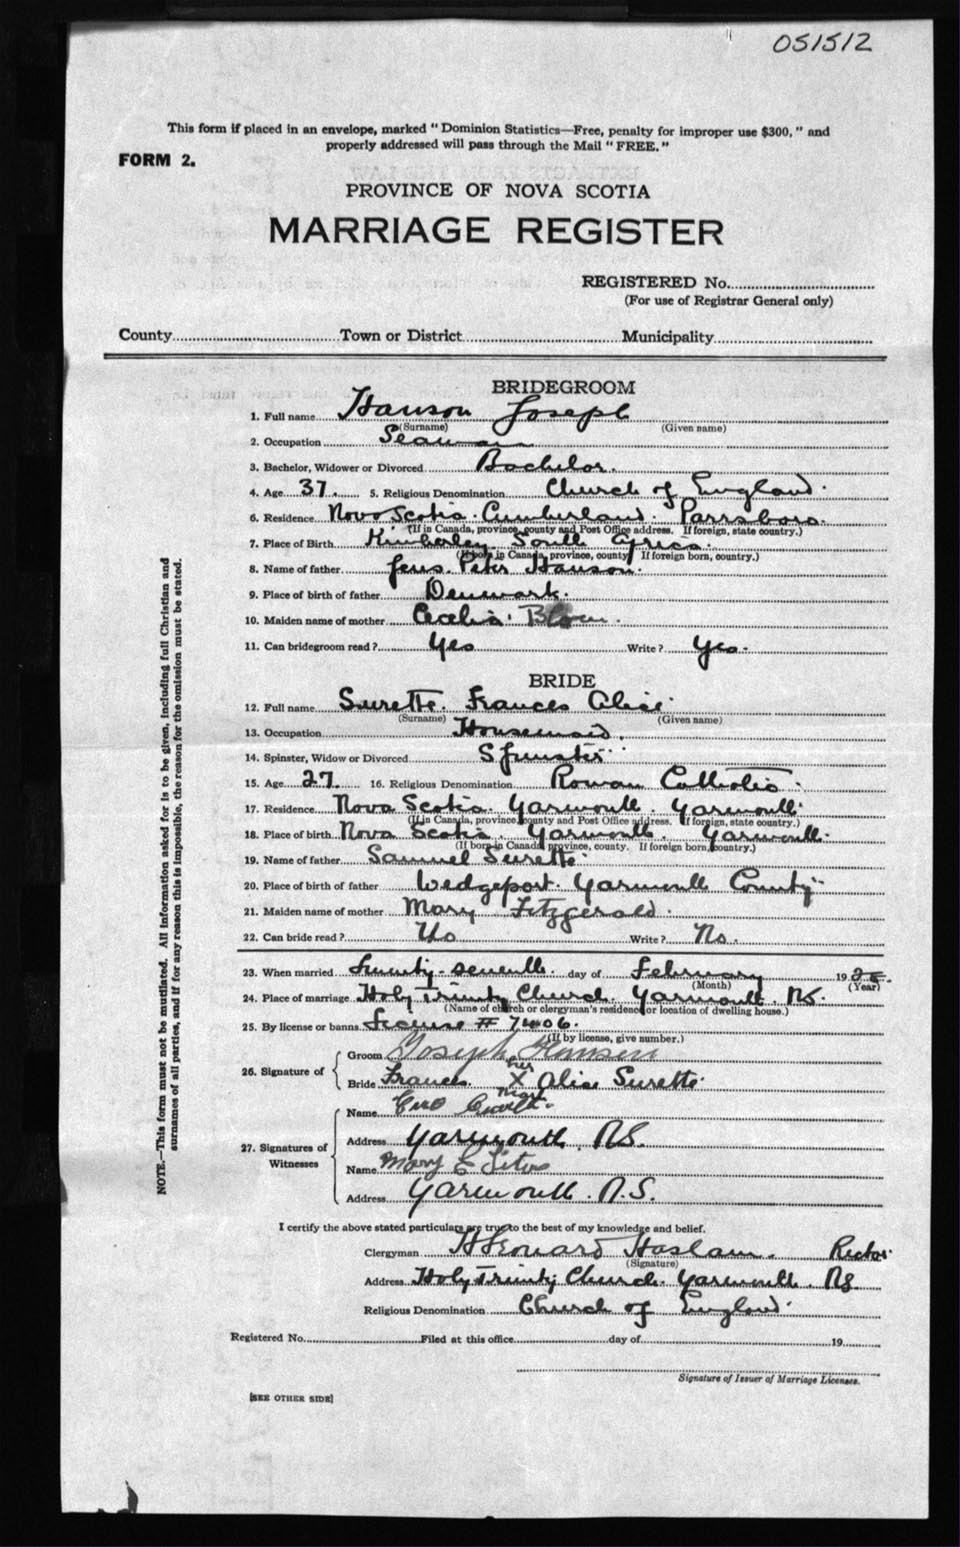 051512
This form if placed in an envelope, marked "Dominion Statistics—Free, penalty for improper use $300," and
properly addressed will pass through the Mail "FREE."
FORM 2.
PROVINCE OF NOVA SCOTIA
MARRIAGE REGISTER
REGISTERED No.
(For use of Registrar General only)
County Town or District Municipality
BRIDEGROOM
1. Full name Hanson Joseph
(Surname) (Given name)
2. Occupation Seaman
3. Bachelor, Widower or Divorced Bachelor.
4. Age 37. 5. Religious Denomination Church of England.
6. Residence Nova Scotia. Cumberland. Parrsboro.
(If in Canada, province, county and Post Office address. If foreign, state country.)
7. Place of Birth Kimberley South Africa.
(If born in Canada, province, county. If foreign born, country.)
8. Name of father Jens Peter Hanson.
9. Place of birth of father Denmark.
10. Maiden name of mother Cecelia.
11. Can bridegroom read? Yes Write? Yes.
BRIDE
12. Full name Surette. Frances Alice
(Surname) (Given name)
13. Occupation Housemaid.
14. Spinster, Widow or Divorced Spinster
15. Age 27. 16. Religious Denomination Roman Catholic
17. Residence Nova Scotia. Yarmouth. Yarmouth.
(If in Canada, province, county and Post Office address. If foreign, state country.)
18. Place of birth Nova Scotia. Yarmouth. Yarmouth.
(If born in Canada province, county. If foreign born, country.)
19. Name of father Samuel Surette.
20. Place of birth of father Wedgeport. Yarmouth County.
21. Maiden name of mother Mary Fitzgerald.
22. Can bride read? No Write? No.
23. When married Twenty-seventh. day of February 19
(Month) (Year)
24. Place of marriage Holy Trinity Church. Yarmouth. NS.
(Name of church or clergyman's residence or location of dwelling house.)
25. By license or banns License # 7406.
(If by license, give number.)
26. Signature of
Groom Joseph Hansen
her
Bride Frances X Alice Surette.
mark
27. Signatures of Witnesses
Name
Address Yarmouth. NS.
Name Mary E
Address Yarmouth. N.S.
I certify the above stated particulars are true to the best of my knowledge and belief.
Clergyman Haslam. Rector
(Signature)
Address Holy Trinity Church. Yarmouth. NS
Religious Denomination Church of England.
Registered No. Filed at this office day of 19
Signature of Issuer of Marriage Licenses.
[SEE OTHER SIDE]
NOTE.—This form must not be mutilated. All information asked for is to be given, including full Christian and
surnames of all parties, and if for any reason this is impossible, the reason for the omission must be stated.